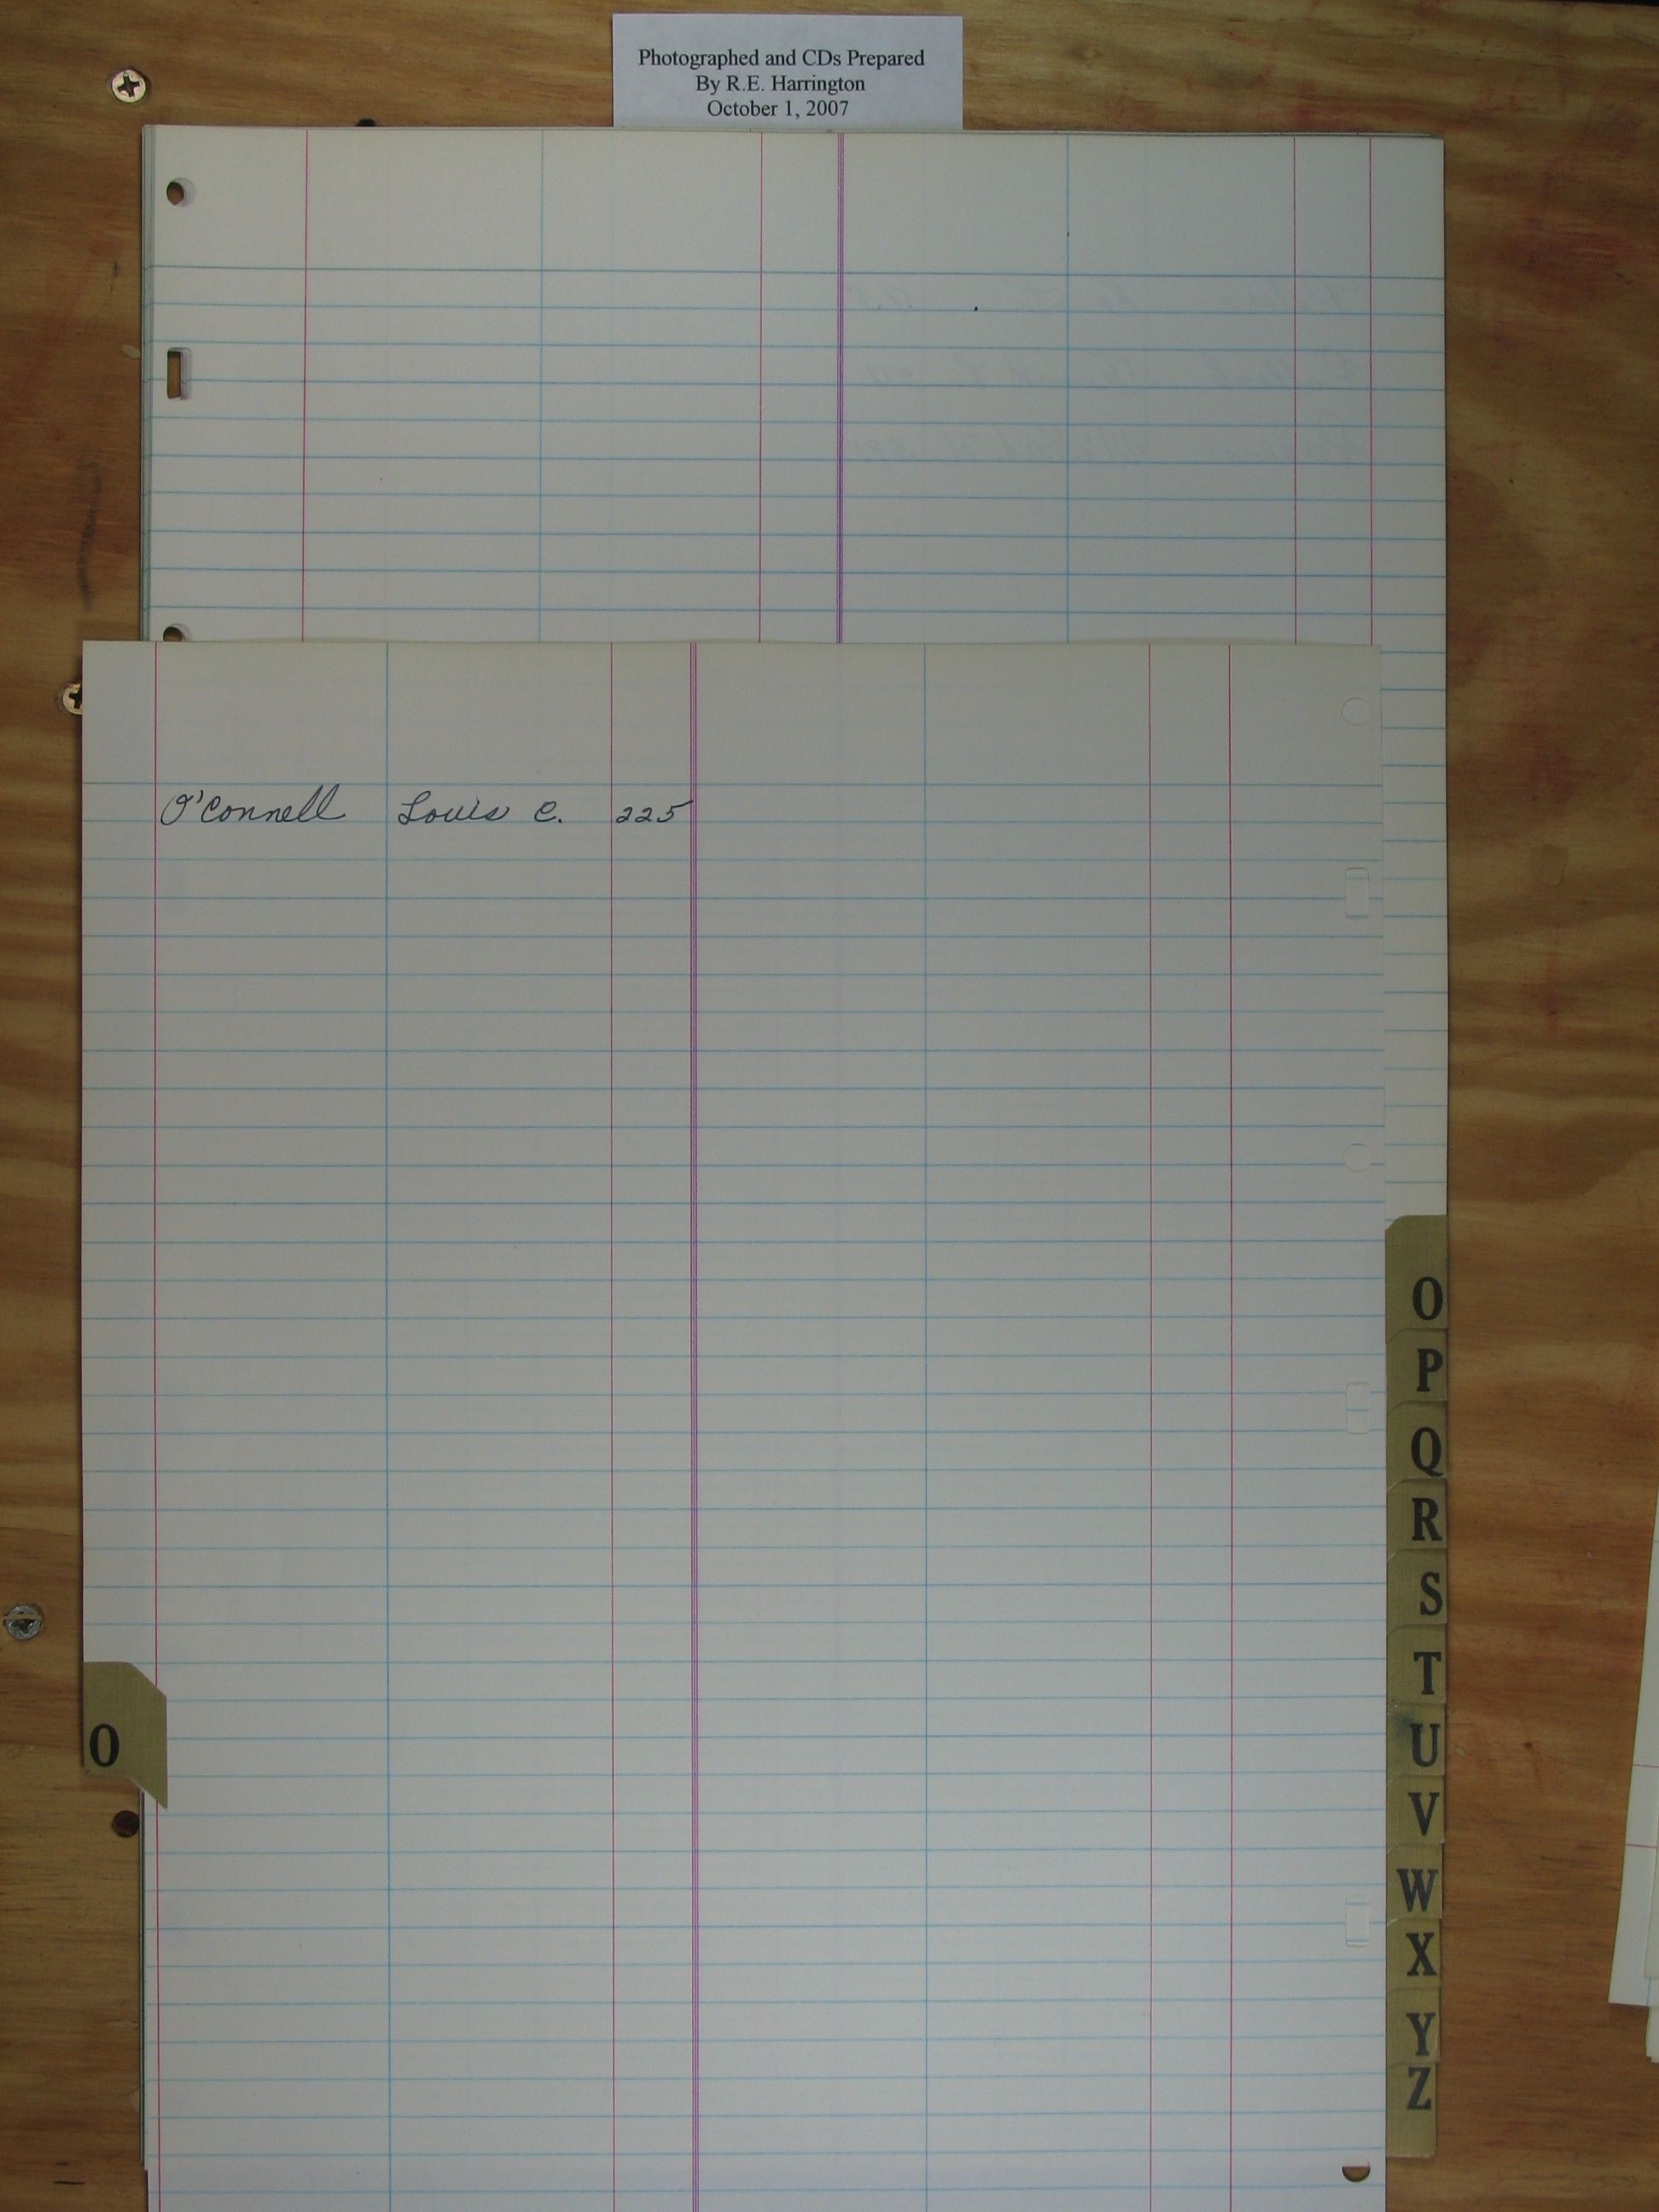 Photographed and CDs Prepared
By R.E. Harrington
October 1, 2007
O'Connell Louis C. 225
O
P
Q
R
S
T
U
V
W
X
Y
Z
O